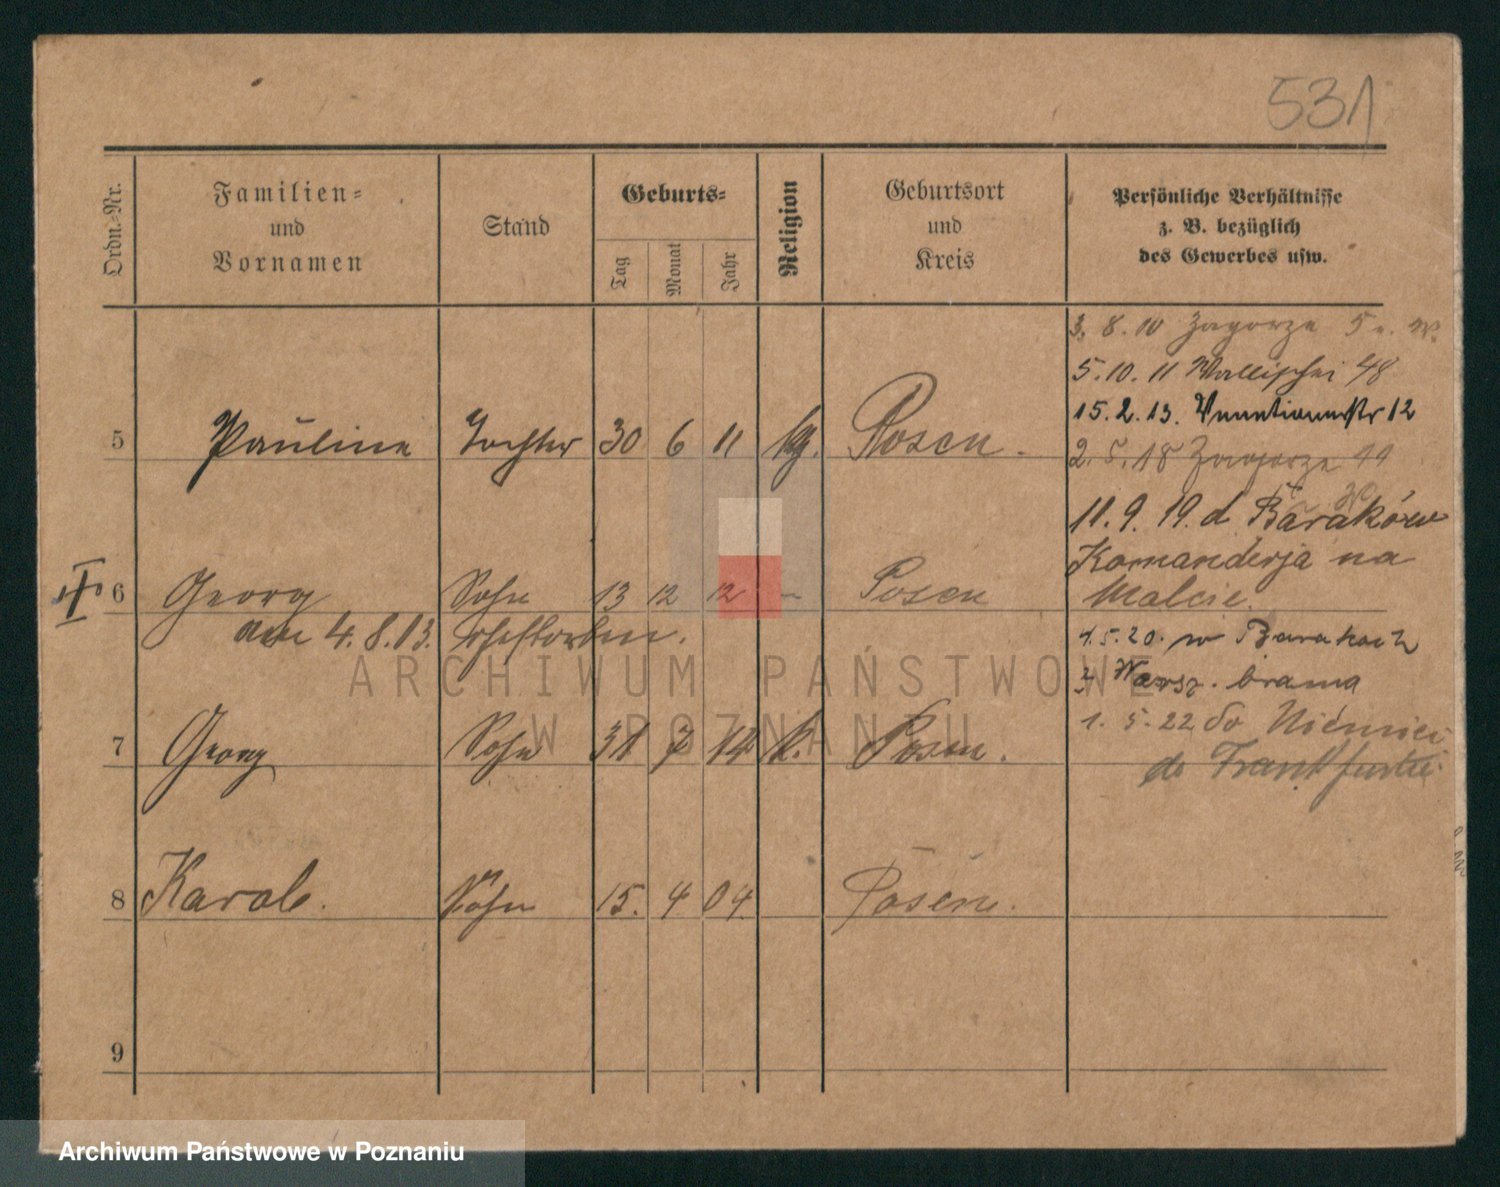 531
Ordn.-Nr.
Familien-
und
Vornamen
Stand
Geburts-
Tag
Monat
Jahr
Religion
Geburtsort
und
Kreis
Persönliche Verhältnisse
z. B. bezüglich
des Gewerbes usw.
3. 8. 10 Zagorze 5
5. 10. 11 Wallischei 48
15. 2. 13. 12
2. 5. 18 Zagorze 11
11. 9. 19. d Baraków
Komanderja na
Malcie.
1. 5. 20. w Barakach
Warsz. brama
1. 5. 22 do Niemiec
do Frankfurtu
5 Pauline Tochter 30 6 11 Posen.
6 Georg Sohn 13 12 12 - Posen
am 4. 8. 13.
7 Georg Sohn 31 7 14 k. Posen.
8 Karol. Sohn 15. 4 04. Posen.
9
ARCHIWUM PAŃSTWOWE
W POZNANIU
Archiwum Państwowe w Poznaniu